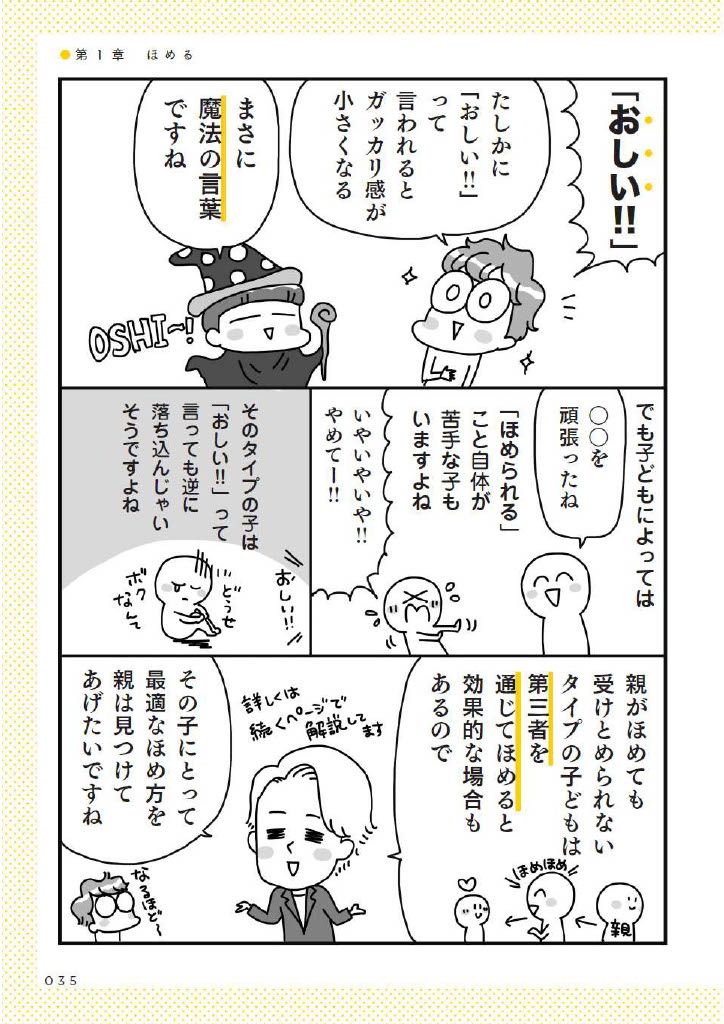 第1章 ほめる
「おしい!!」
たしかに
「おしい!!」
って
言われると
ガッカリ感が
小さくなる
まさに
魔法の言葉
ですね
OSHI〜!
でも子どもによっては
〇〇を
頑張ったね
「ほめられる」
こと自体が
苦手な子も
いますよね
いやいやいや!!
やめてー!!
そのタイプの子は
「おしい!!」って
言っても逆に
落ち込んじゃい
そうですよね
おしい!!
どうせ
ボク
なんて
親がほめても
受けとめられない
タイプの子どもは
第三者を
通じてほめると
効果的な場合も
あるので
ほめほめ
親
詳しくは
続くページで
解説してます
その子にとって
最適なほめ方を
親は見つけて
あげたいですね
なるほど〜
035